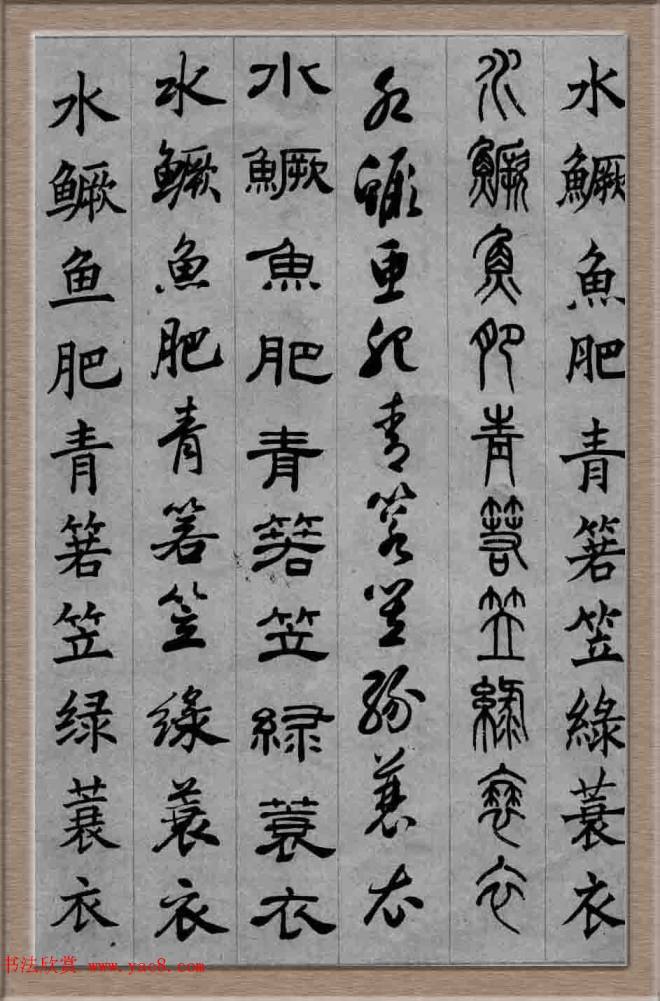 水鱖魚肥青箬笠綠蓑衣
水鱖魚肥青箬笠綠蓑衣
水鱖魚肥青箬笠綠蓑衣
水鱖魚肥青箬笠綠蓑衣
水鱖魚肥青箬笠綠蓑衣
水鳜鱼肥青箬笠绿蓑衣
书法欣赏 www.yac8.com